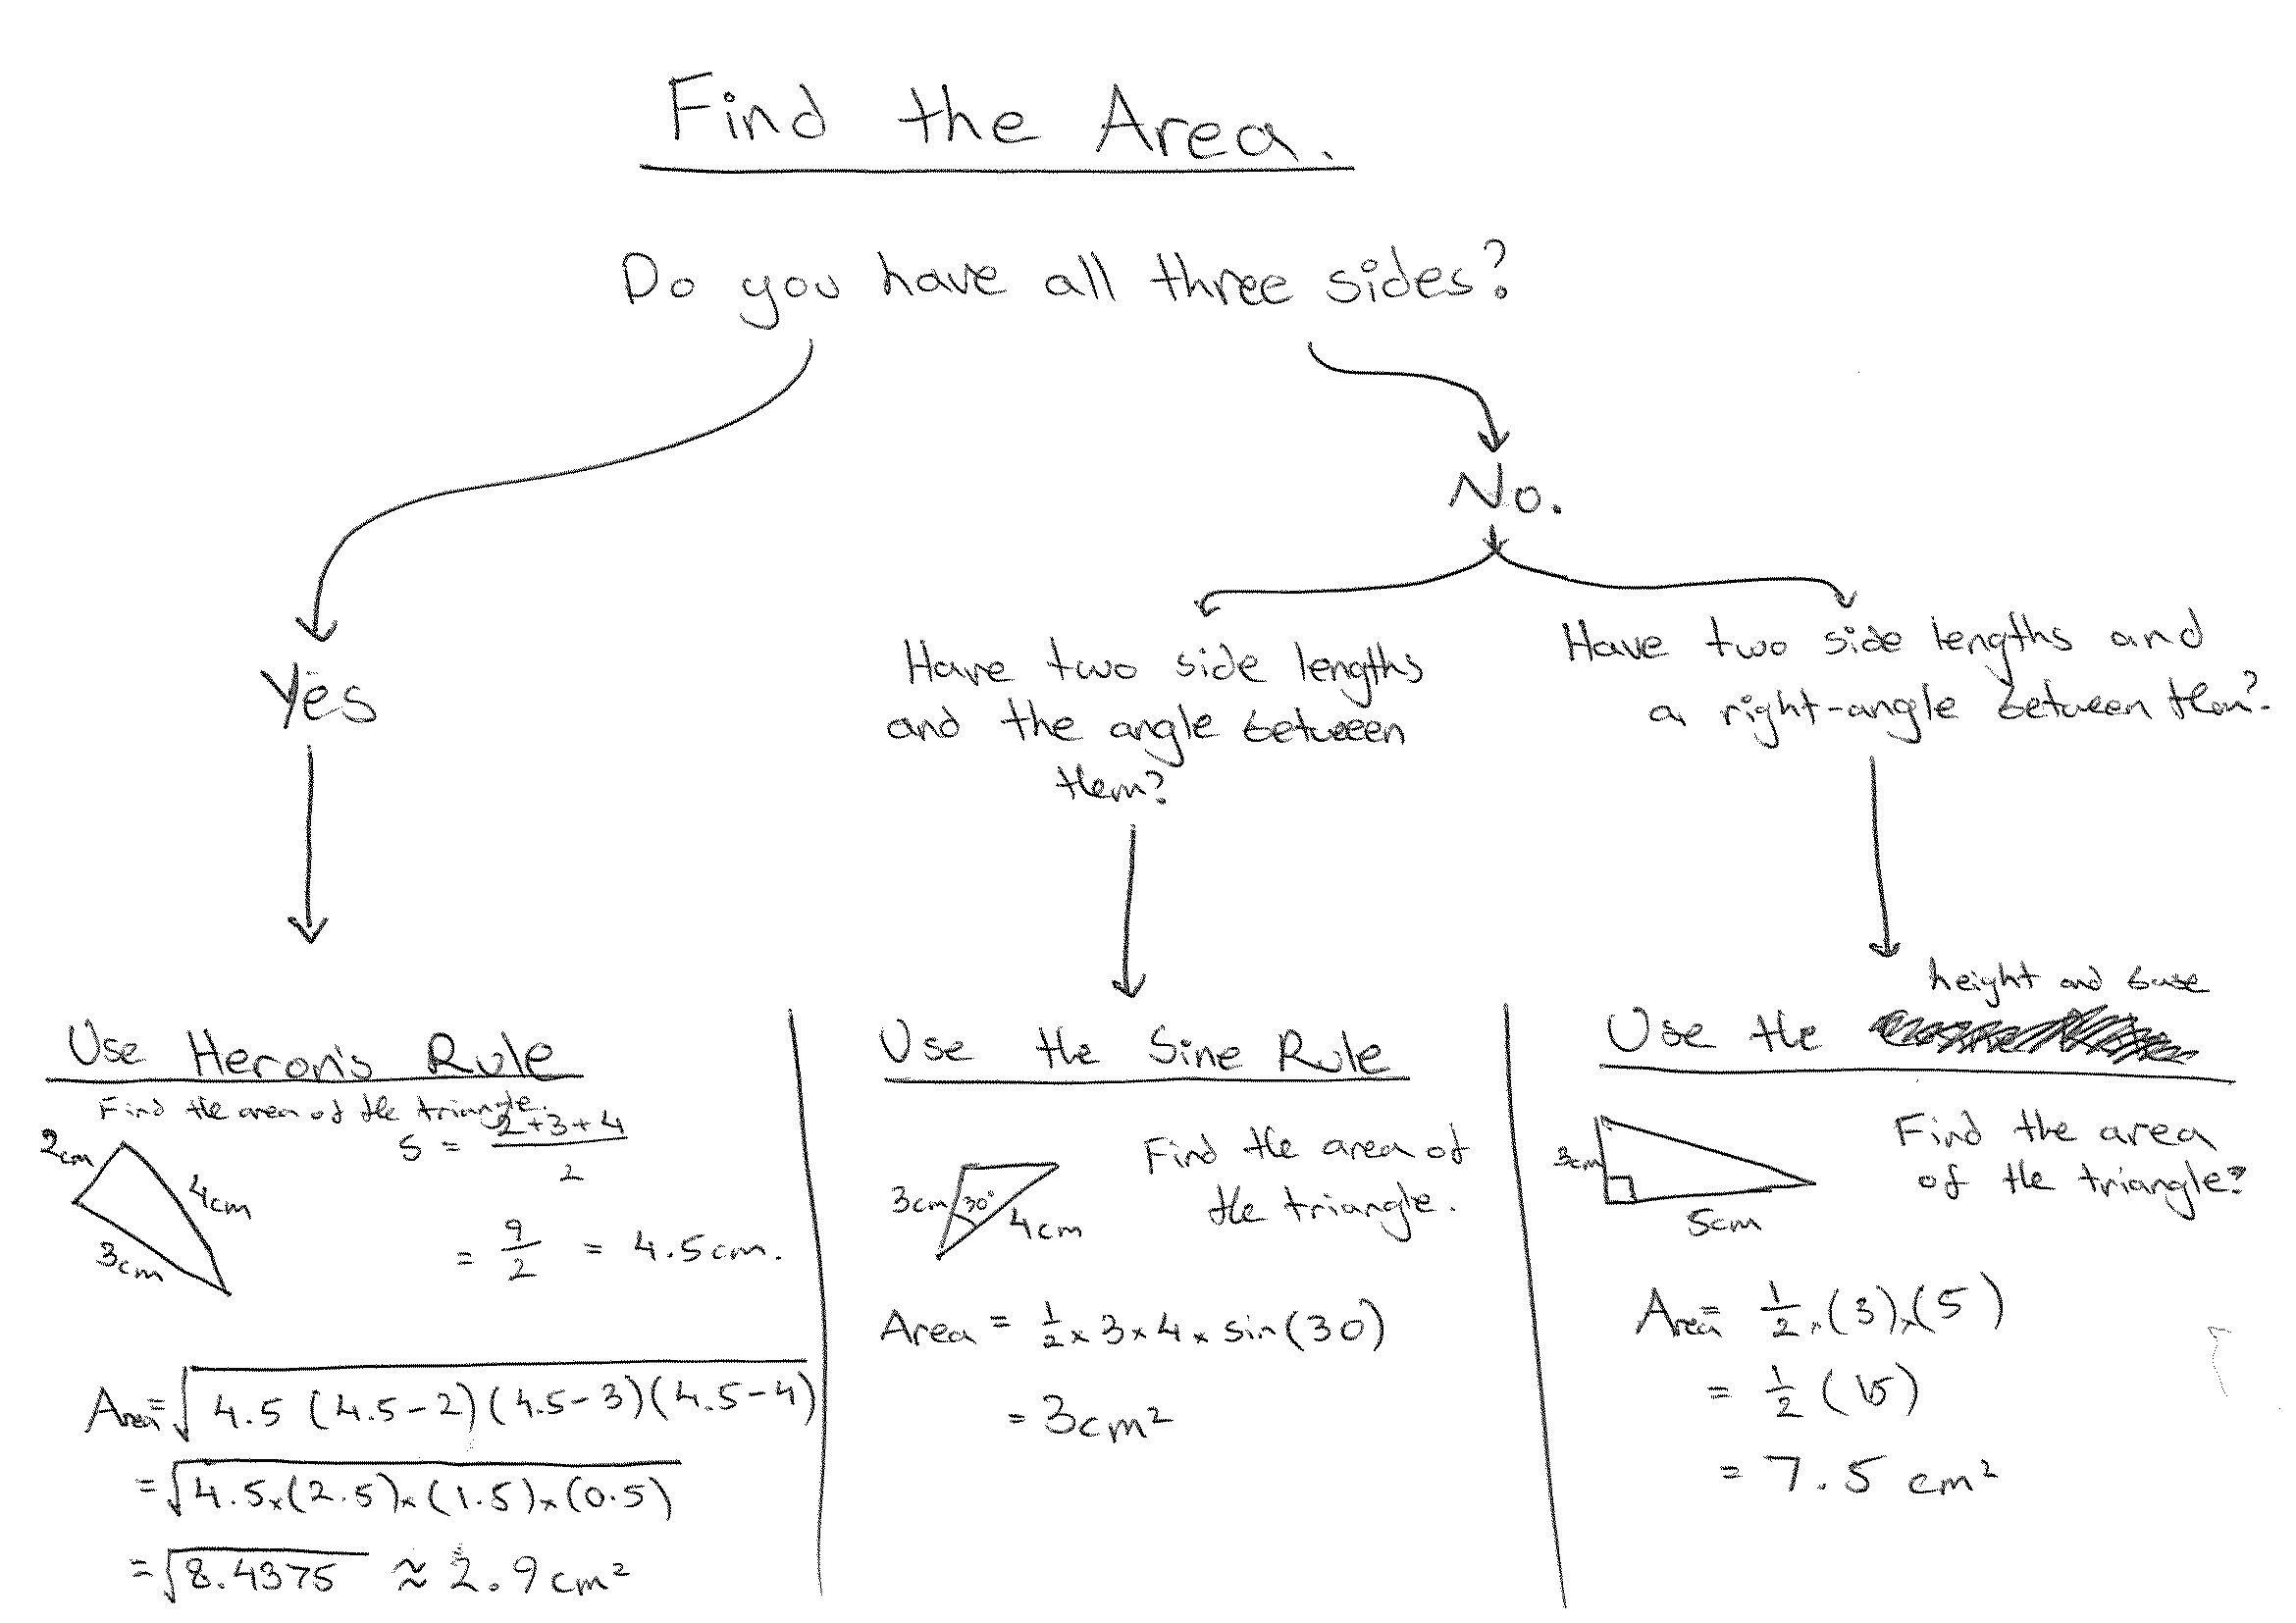 Find the Area.
Do you have all three sides?
No.
Yes
Have two side lengths
and the angle between
them?
Have two side lengths and
a right-angle between them?
Use Heron's Rule
Find the area of the triangle.
2cm
4cm
3cm
S = 2+3+4
2
= 9/2 = 4.5cm.
Area = √4.5 (4.5-2)(4.5-3)(4.5-4)
= √4.5×(2.5)×(1.5)×(0.5)
= √8.4375 ≈ 2.9cm²
Use the Sine Rule
3cm
30°
4cm
Find the area of
the triangle.
Area = 1/2 × 3 × 4 × sin(30)
= 3cm²
height and base
Use the
3cm
5cm
Find the area
of the triangle?
Area = 1/2 × (3) × (5)
= 1/2 (15)
= 7.5 cm²